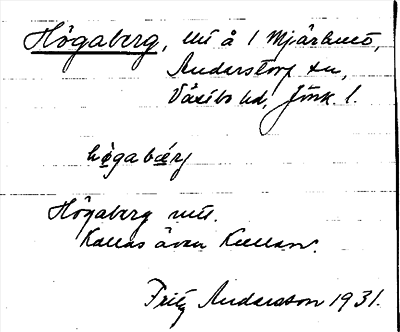 Högaberg, utt å 1 Mjärhult,
Anderstorp sn,
Västbo hd, Jönk. l.
høgabærj
Högaberg utt.
Kallas även Kullan.
Fritz Andersson 1931.